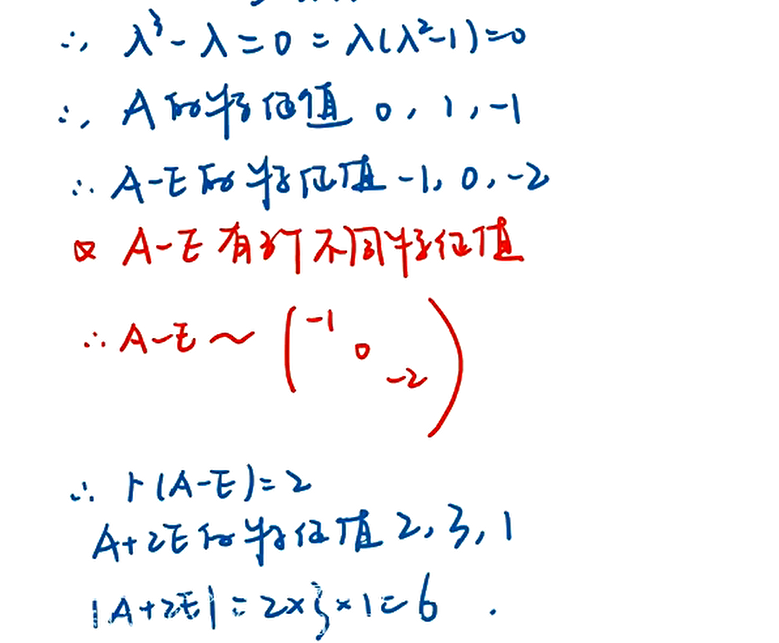 ∴ λ³-λ=0=λ(λ²-1)=0
∴ A的特征值 0,1,-1
∴ A-E的特征值-1,0,-2
又 A-E有3个不同特征值
∴ A-E ~ (-1 0 -2)
∴ r(A-E)=2
A+2E的特征值2,3,1
|A+2E|=2×3×1=6.